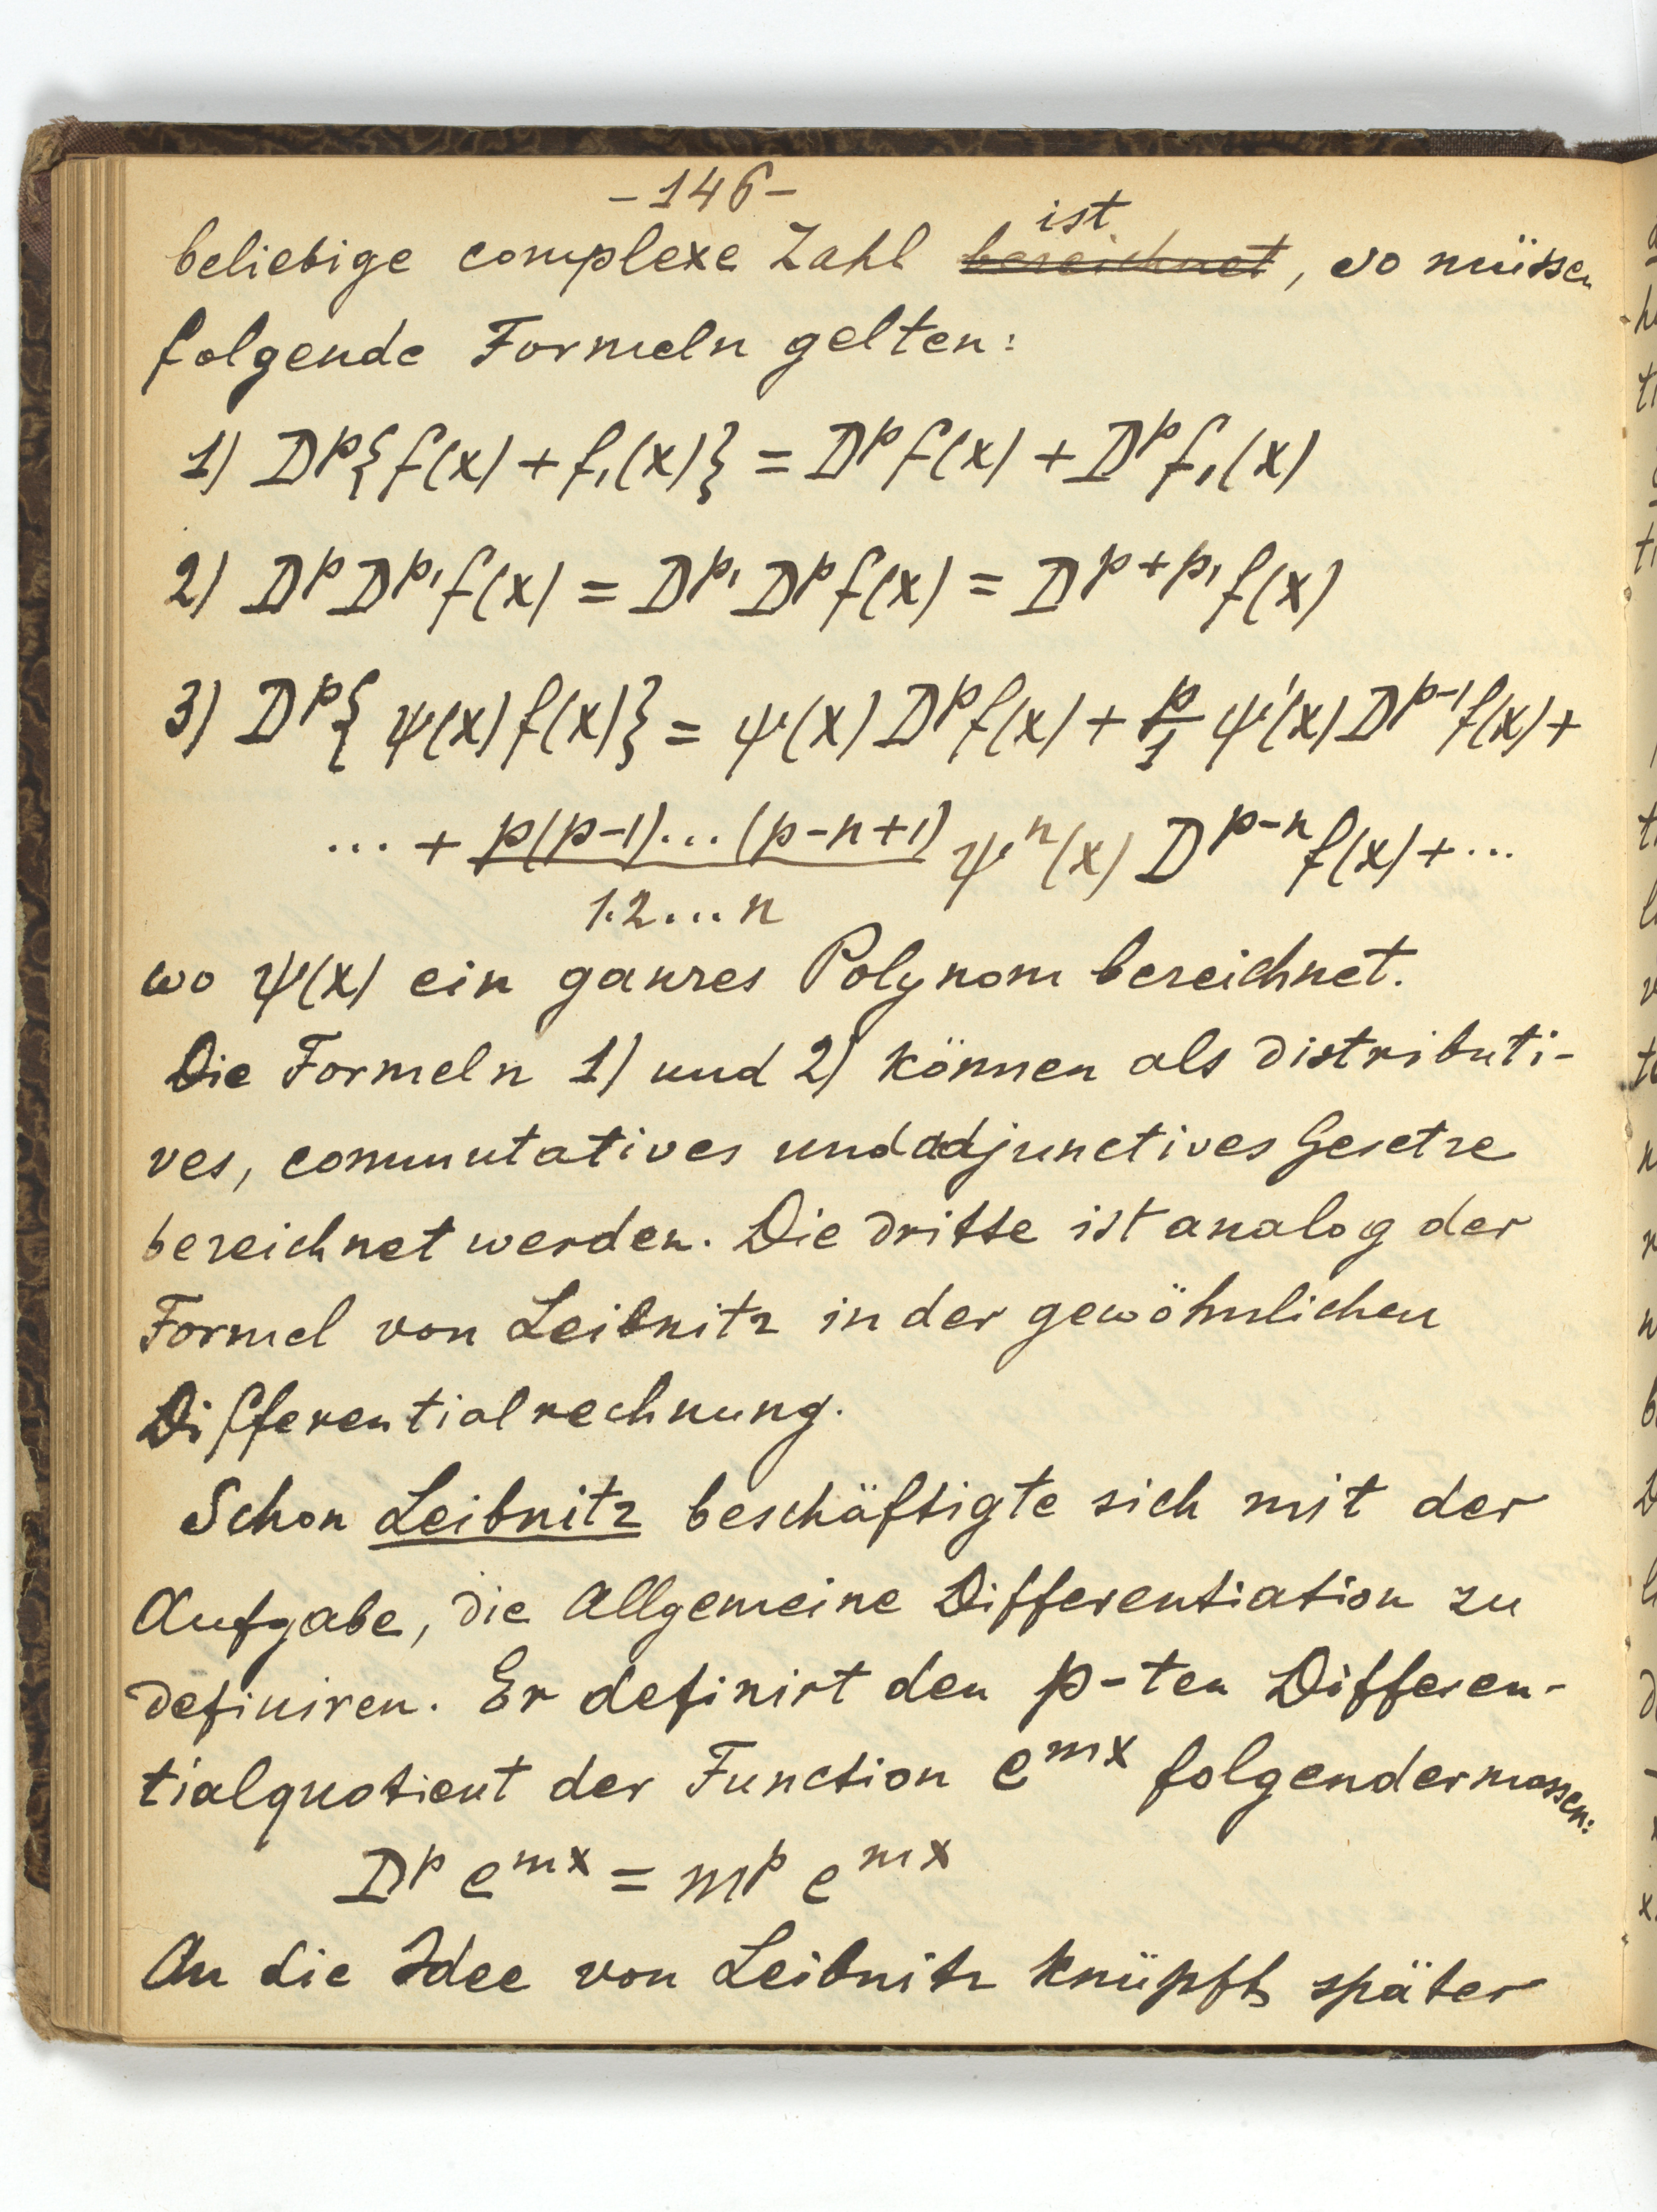 -146-
beliebige complexe Zahl ~~bezeichnet~~ ist, so müssen
folgende Formeln gelten:
1) D^p{f(x) + f₁(x)} = D^p f(x) + D^p f₁(x)
2) D^p D^p₁ f(x) = D^p₁ D^p f(x) = D^{p+p₁} f(x)
3) D^p{ψ(x) f(x)} = ψ(x) D^p f(x) + p/1 ψ'(x) D^{p-1} f(x) +
... + p(p-1)...(p-n+1)/1.2...n ψ^n(x) D^{p-n} f(x) + ...
wo ψ(x) ein ganzes Polynom bezeichnet.
Die Formeln 1) und 2) können als distributi-
ves, commutatives und adjunctives Gesetze
bezeichnet werden. Die dritte ist analog der
Formel von Leibnitz in der gewöhnlichen
Differentialrechnung.
Schon Leibnitz beschäftigte sich mit der
Aufgabe, die Allgemeine Differentiation zu
definiren. Er definirt den p-ten Differen-
tialquotient der Function e^{mx} folgendermassen:
D^p e^{mx} = m^p e^{mx}
An die Idee von Leibnitz knüpft später